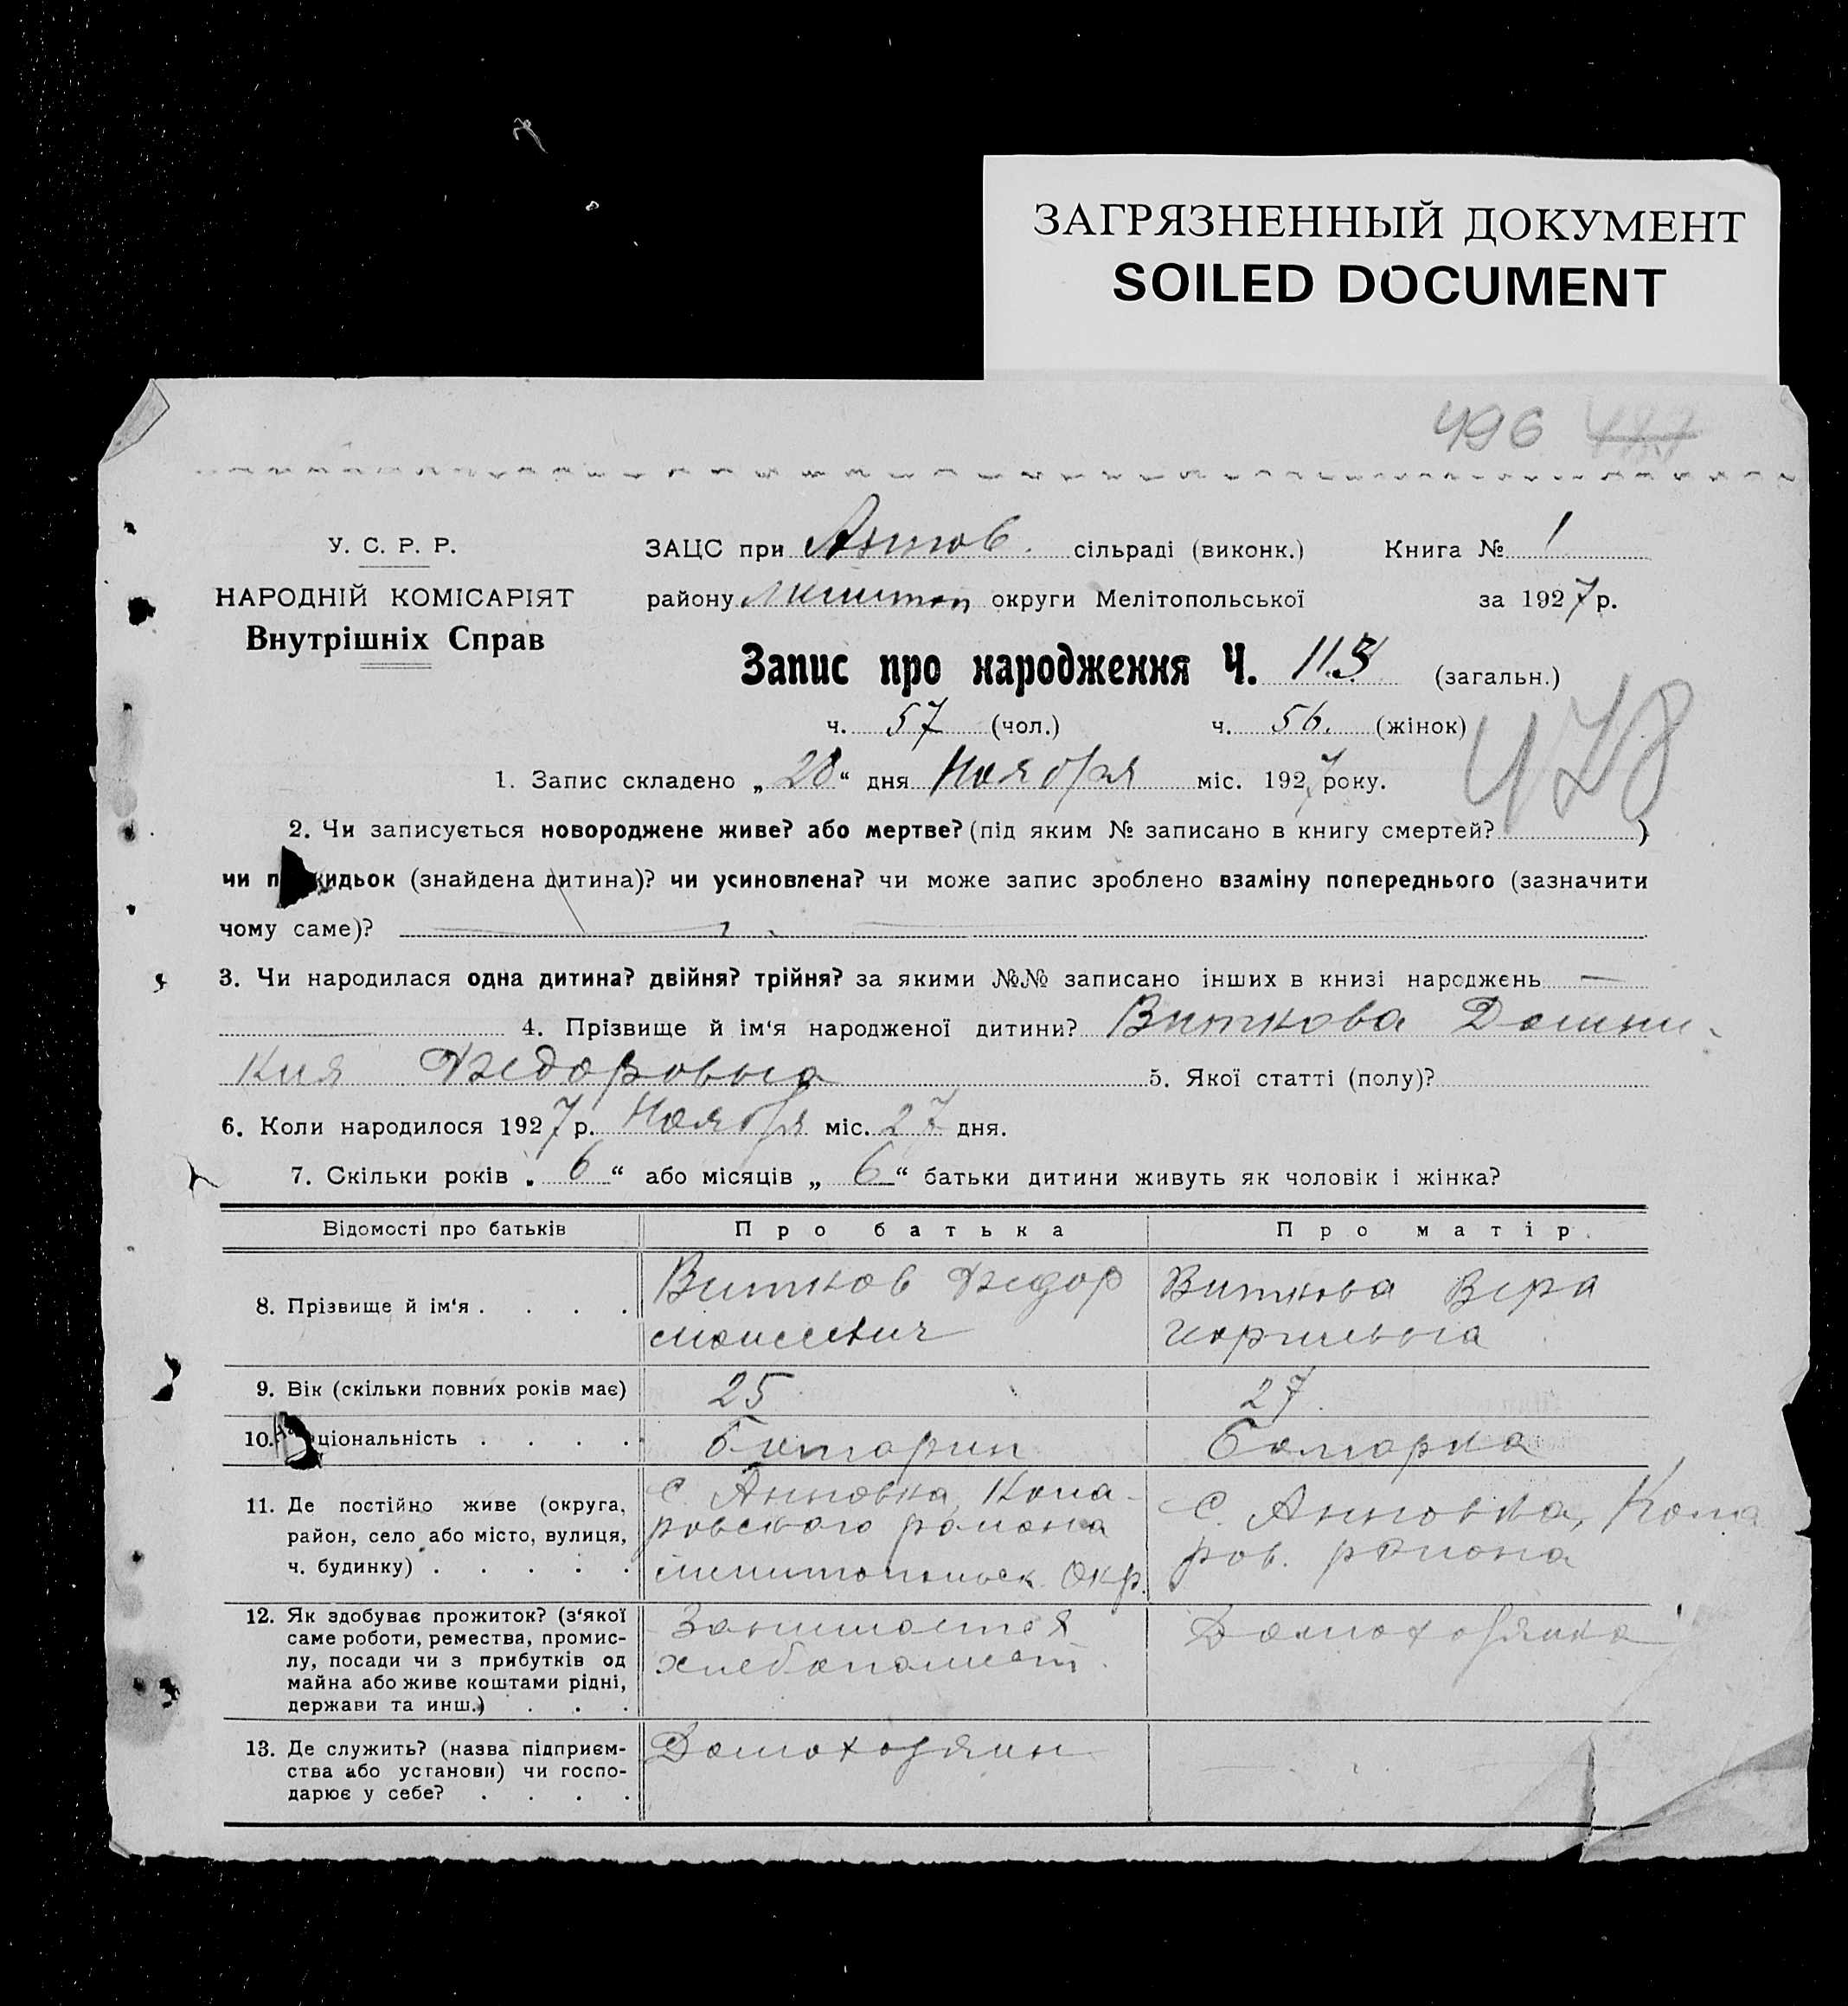 ЗАГРЯЗНЕННЫЙ ДОКУМЕНТ
SOILED DOCUMENT
496
У. С. Р. Р.
НАРОДНІЙ КОМІСАРІЯТ
Внутрішніх Справ
ЗАЦС при сільраді (виконк.) Книга № 1
району округи Мелітопольської за 1927 р.
Запис про народження Ч. 113 (загальн.)
ч. 57 (чол.) ч. 56. (жінок)
478
1. Запис складено „28“ дня Ноября міс. 1927 року.
2. Чи записується новороджене живе? або мертве? (під яким № записано в книгу смертей? )
чи п кидьок (знайдена дитина)? чи усиновлена? чи може запис зроблено взаміну попереднього (зазначити
чому саме)?
3. Чи народилася одна дитина? двійня? трійня? за якими №№ записано інших в книзі народжень —
4. Прізвище й ім‘я народженої дитини? Виткова Домни-
кия Федоровна 5. Якої статті (полу)?
6. Коли народилося 1927 р. Ноября міс. 27 дня.
7. Скільки років „ 6 “ або місяців „ 6 “ батьки дитини живуть як чоловік і жінка?
Відомості про батьків Про батька Про матір.
8. Прізвище й ім‘я . . . . Витков Федор Виткова Вера
моисеевич
9. Вік (скільки повних років має) 25 27
10. ціональність . . . . Болгарин Болгарка
11. Де постійно живе (округа, район, село або місто, вулиця, ч. будинку) . . . . .
с. Анновка, Кола-
ровского района
мелитопольск. Окр.
с. Анновка, Кола
ров. района
12. Як здобуває прожиток? (з‘якої саме роботи, ремества, промислу, посади чи з прибутків од майна або живе коштами рідні, держави та инш.) . . .
Занимается
хлебопашест.
Домохозяйка
13. Де служить? (назва підприємства або установи) чи господарює у себе? . . . .
Домохозяин